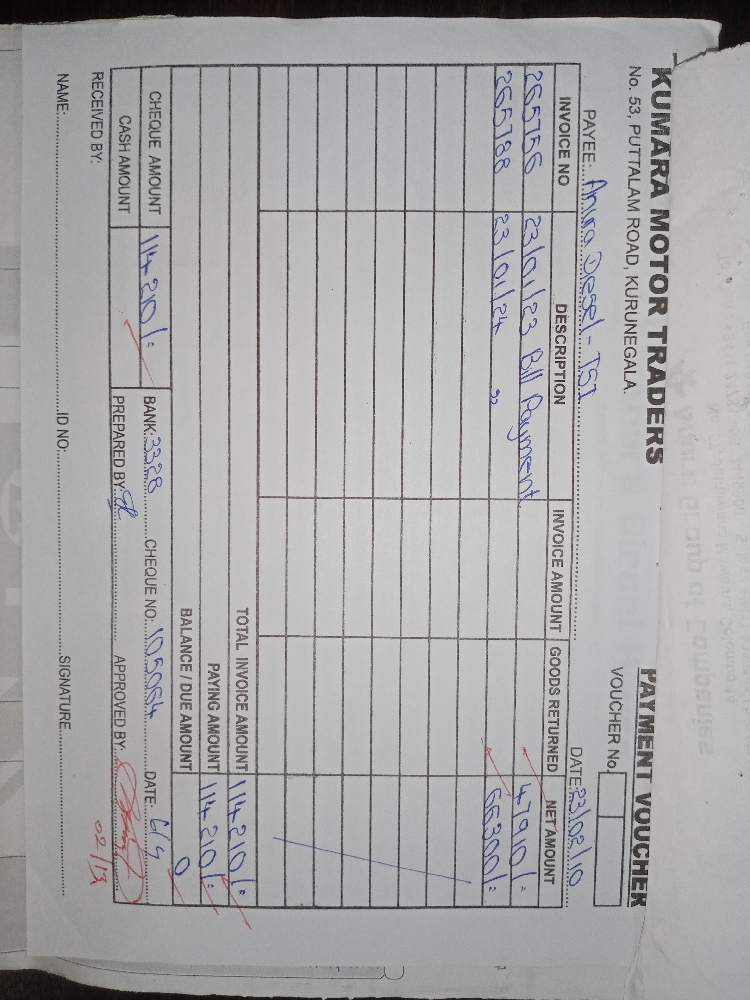 KUMARA MOTOR TRADERS
No. 53, PUTTALAM ROAD, KURUNEGALA.
PAYMENT VOUCHER
VOUCHER No.
PAYEE: Anura Diesel - TSI DATE: 23/02/10
INVOICE NO DESCRIPTION INVOICE AMOUNT GOODS RETURNED NET AMOUNT
265756 23/01/23 Bill Payment 47910/=
265788 23/01/24 " 66300/=
TOTAL INVOICE AMOUNT 114210/=
PAYING AMOUNT 114210/=
BALANCE / DUE AMOUNT 0
CHEQUE AMOUNT 114210/= BANK: 3328 CHEQUE NO: 105064 DATE: 6/4
CASH AMOUNT PREPARED BY: APPROVED BY:
02/13
RECEIVED BY:
NAME: ID NO: SIGNATURE